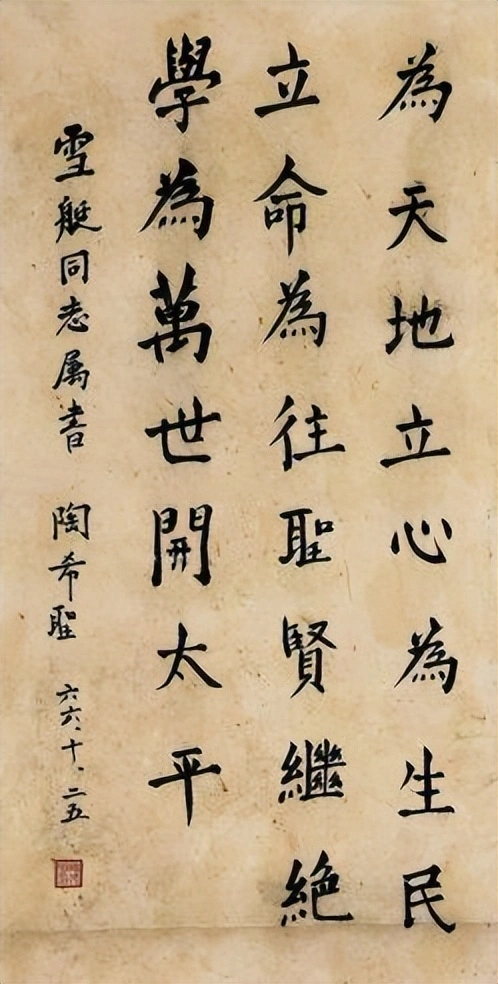 為天地立心為生民
立命為往聖賢繼絕
學為萬世開太平
雪艇同志属書 陶希聖 六六、十、二五